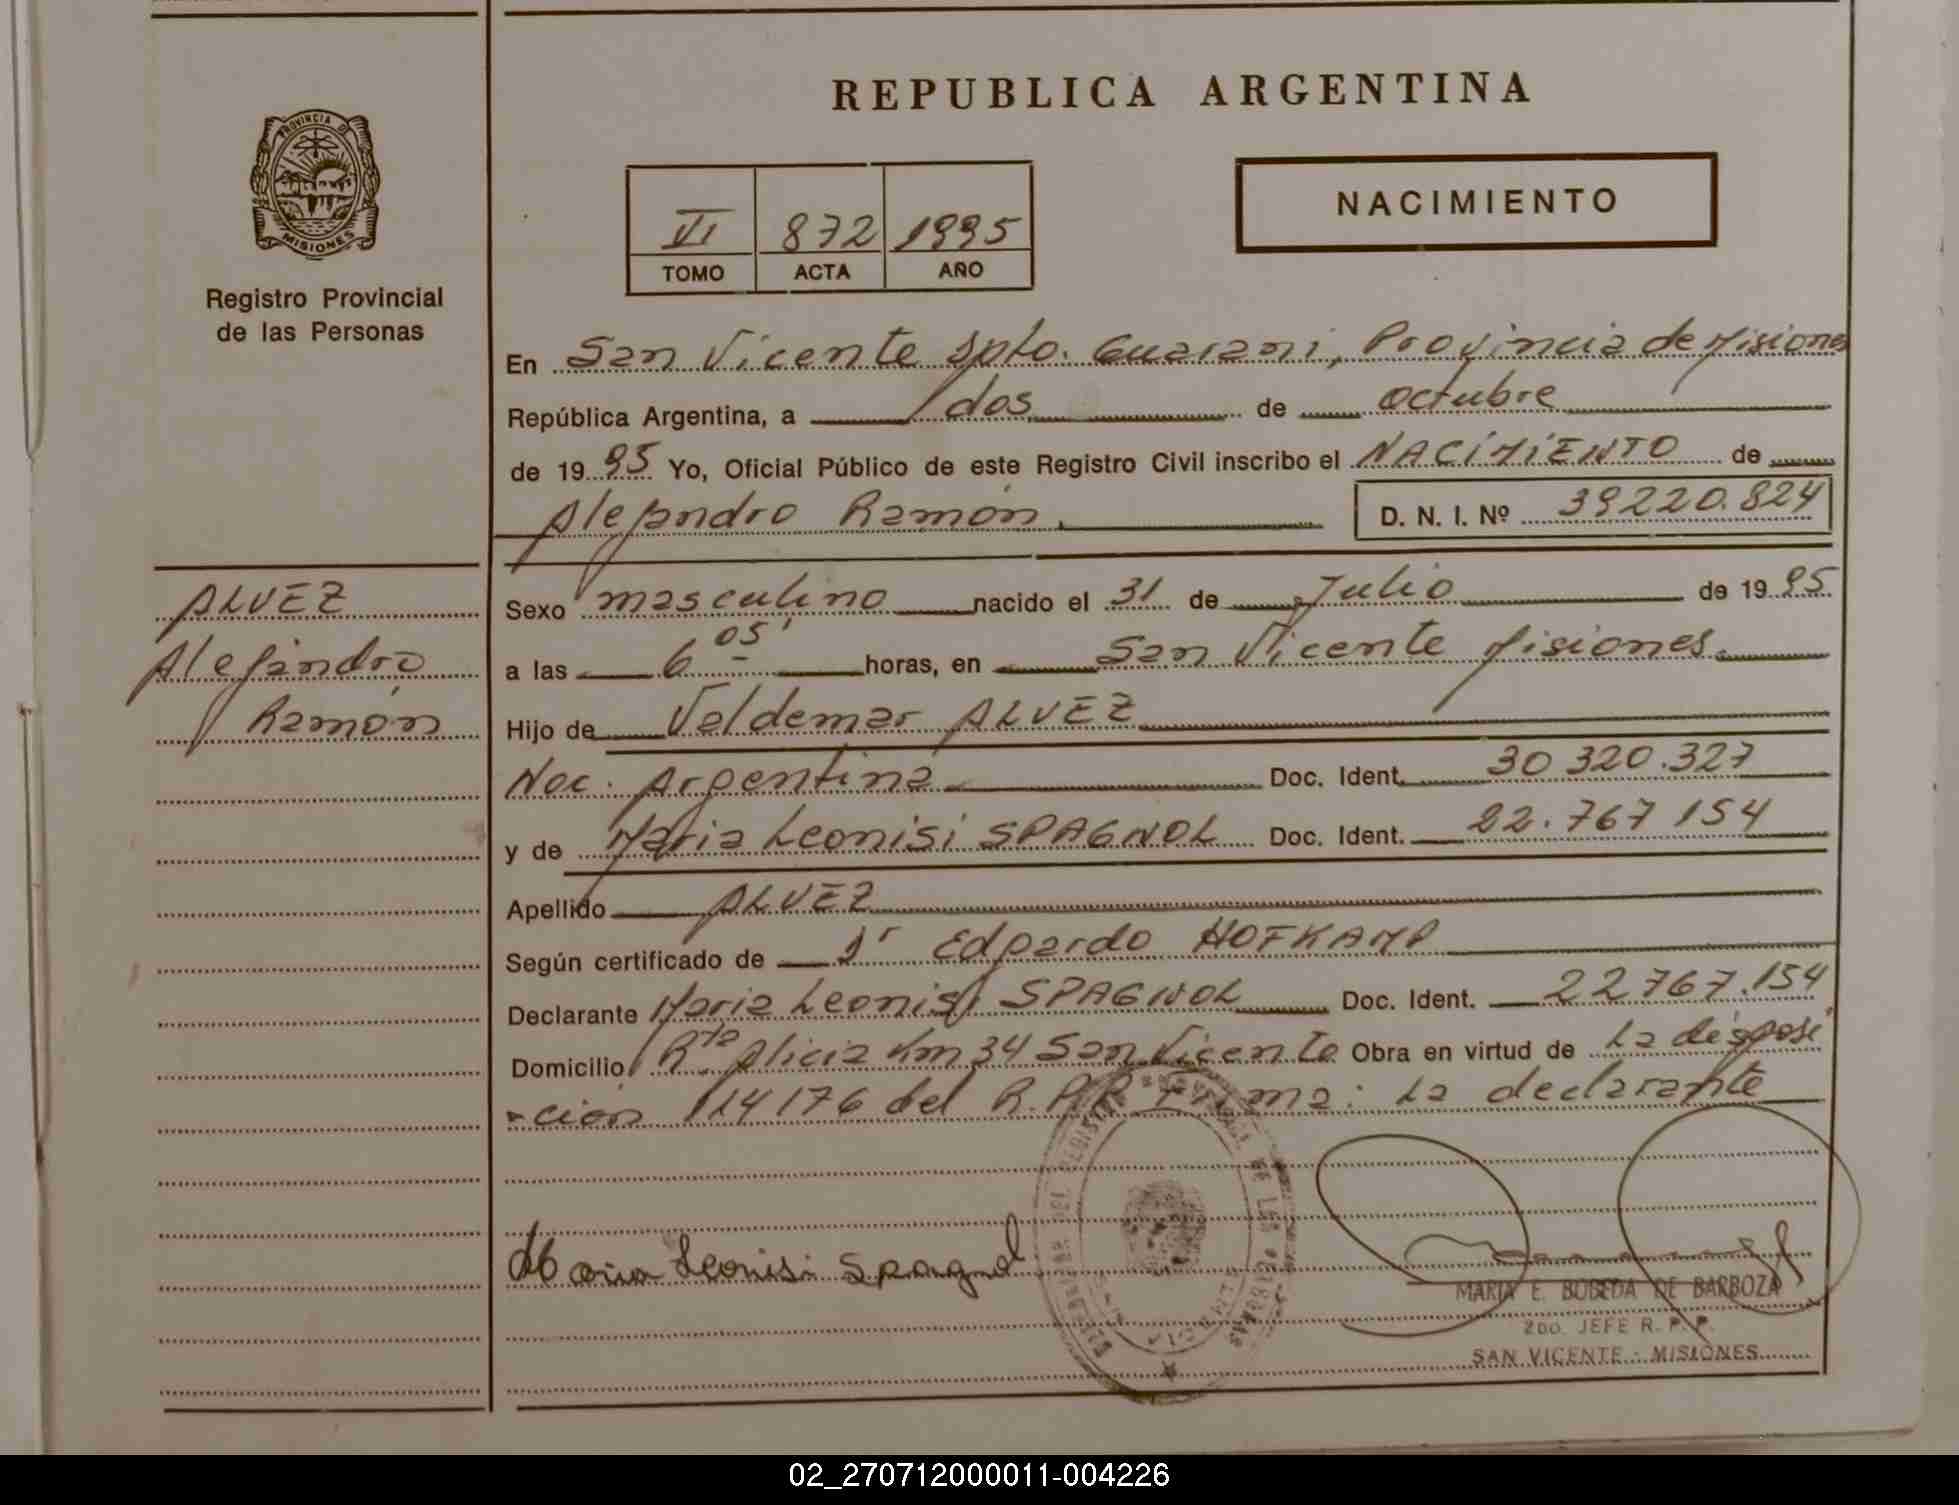 REPUBLICA ARGENTINA
PROVINCIA DE
MISIONES
Registro Provincial
de las Personas
VI 872 1995
TOMO ACTA AÑO
NACIMIENTO
En San Vicente Dpto. Guarani, Provincia de Misiones
República Argentina, a dos de octubre
de 1995 Yo, Oficial Público de este Registro Civil inscribo el NACIMIENTO de
Alejandro Ramón D. N. I. Nº 39220.824
ALVEZ
Alejandro
Ramón
Sexo masculino nacido el 31 de Julio de 1995
a las 6 05' horas, en San Vicente Misiones.
Hijo de Valdemar ALVEZ
Nac. Argentina Doc. Ident. 30 320.327
y de Maria Leonisi SPAGNOL Doc. Ident. 22.767 154
Apellido ALVEZ
Según certificado de Dr Edgardo HOFKAMP
Declarante Maria Leonisi SPAGNOL Doc. Ident. 22767.154
Domicilio Rta Alicia Km 34 San Vicente Obra en virtud de La disposi
-ción 14176 del R.P.P. Firma: La declarante
Maria Leonisi Spagnol
MARIA E. BOBEDA DE BARBOZA
2DO. JEFE R. P. P.
SAN VICENTE - MISIONES
02_270712000011-004226